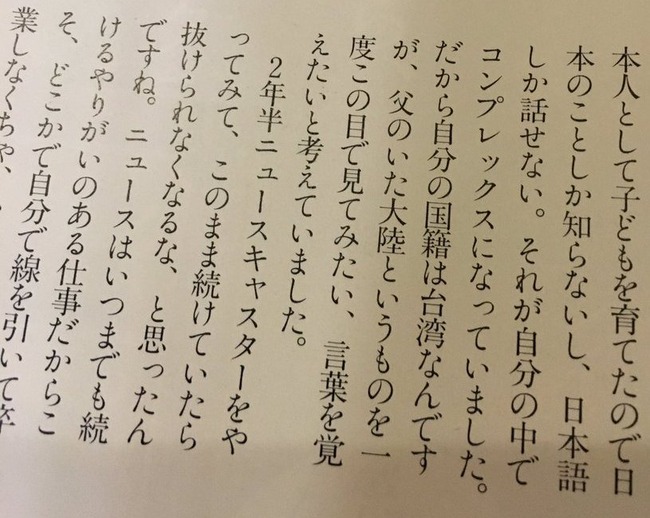 本人として子どもを育てたので日
本のことしか知らないし、日本語
しか話せない。それが自分の中で
コンプレックスになっていました。
だから自分の国籍は台湾なんです
が、父のいた大陸というものを一
度この目で見てみたい、言葉を覚
えたいと考えていました。
2年半ニュースキャスターをや
ってみて、このまま続けていたら
抜けられなくなるな、と思ったん
ですね。ニュースはいつまでも続
けるやりがいのある仕事だからこ
そ、どこかで自分で線を引いて卒
業しなくちゃ、